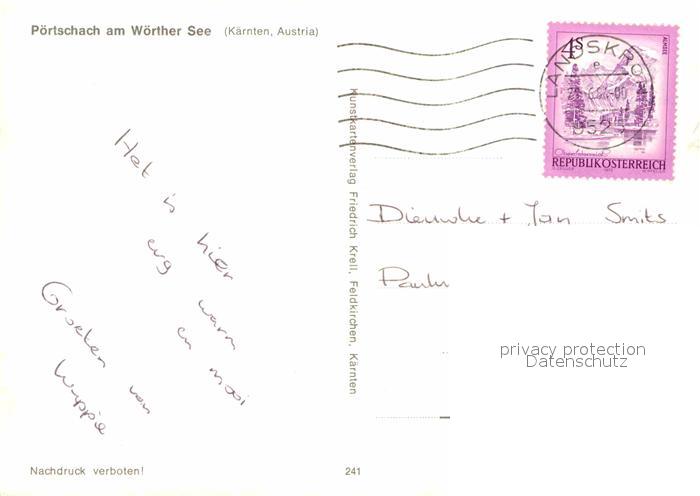 Pörtschach am Wörther See (Kärnten, Austria)
Het is hier
erg warm
en mooi
Groeten van
Wuppie
Kunstkartenverlag Friedrich Krell, Feldkirchen, Kärnten
LANDSKRON
e
9523
4S
ALMSEE
Oberösterreich
REPUBLIK ÖSTERREICH
Dieuwke + Jan Smits
privacy protection
Datenschutz
Nachdruck verboten!
241